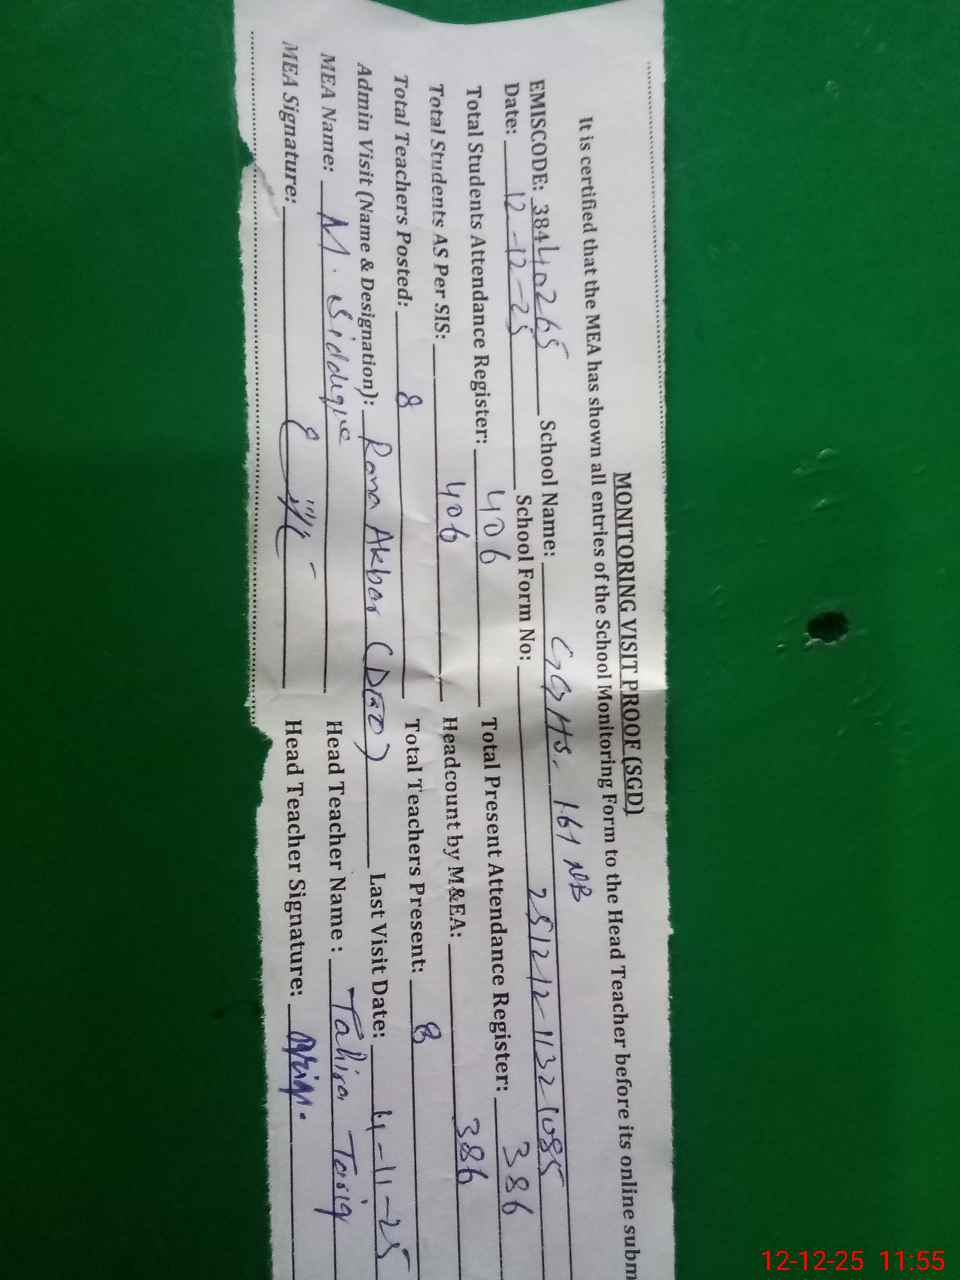 MONITORING VISIT PROOF (SGD)
It is certified that the MEA has shown all entries of the School Monitoring Form to the Head Teacher before its online subm
EMISCODE: 38440265 School Name: GGHS. 161 NB
Date: 12-12-25 School Form No: 251212-11321085
Total Students Attendance Register: 406 Total Present Attendance Register: 386
Total Students AS Per SIS: 406 Headcount by M&EA: 386
Total Teachers Posted: 8 Total Teachers Present: 8
Admin Visit (Name & Designation): Rana Akbar (DEO) Last Visit Date: 4-11-25
MEA Name: M. Siddique Head Teacher Name : Tahira Tariq
MEA Signature: Head Teacher Signature:
12-12-25 11:55